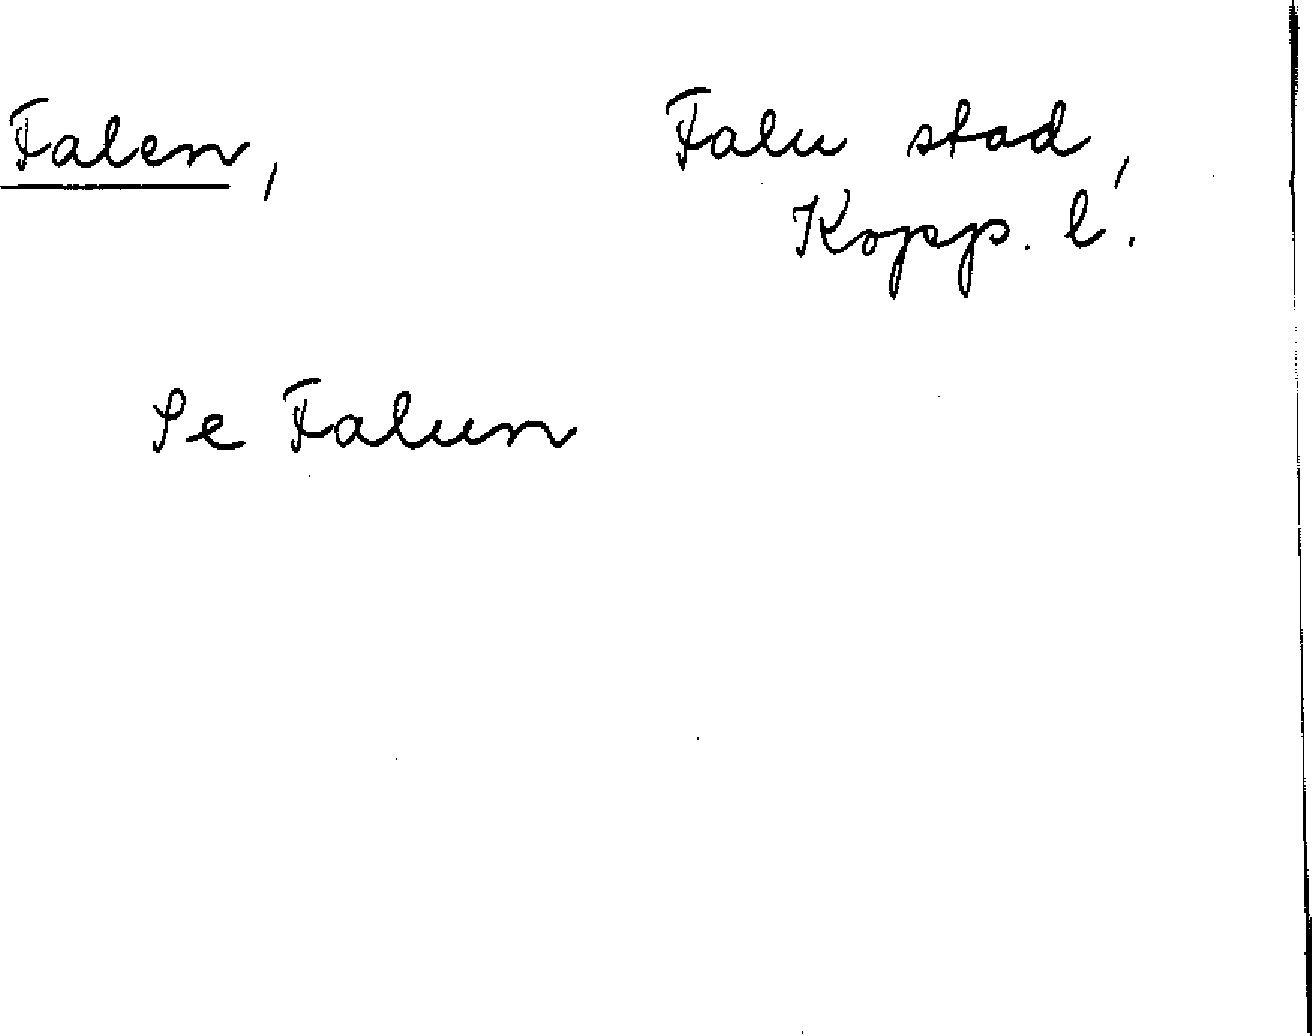 Falen, Falu stad,
Kopp. l.
Se Falun